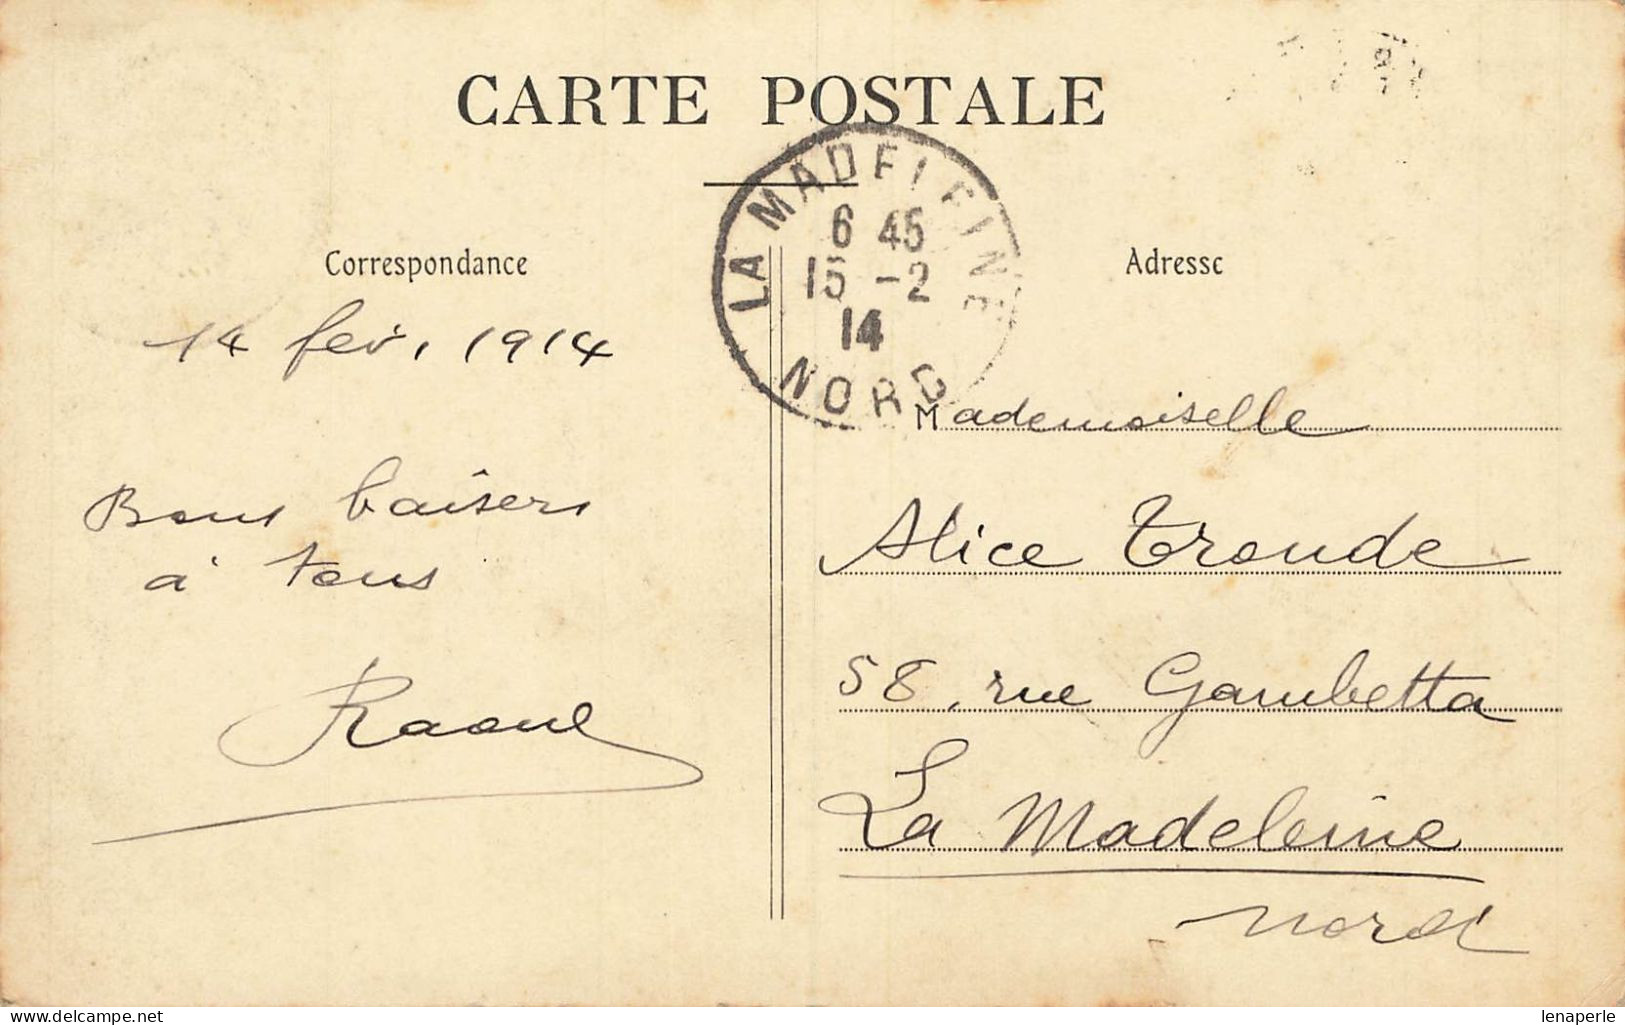 CARTE POSTALE
LA MADELEINE
6 45
15 -2
14
NORD
Correspondance
14 fév. 1914
Bons baisers
à tous
Raoul
Adresse
Mademoiselle
Alice Tronde
58, rue Gambetta
La Madeleine
Nord
www.delcampe.net
lenaperle